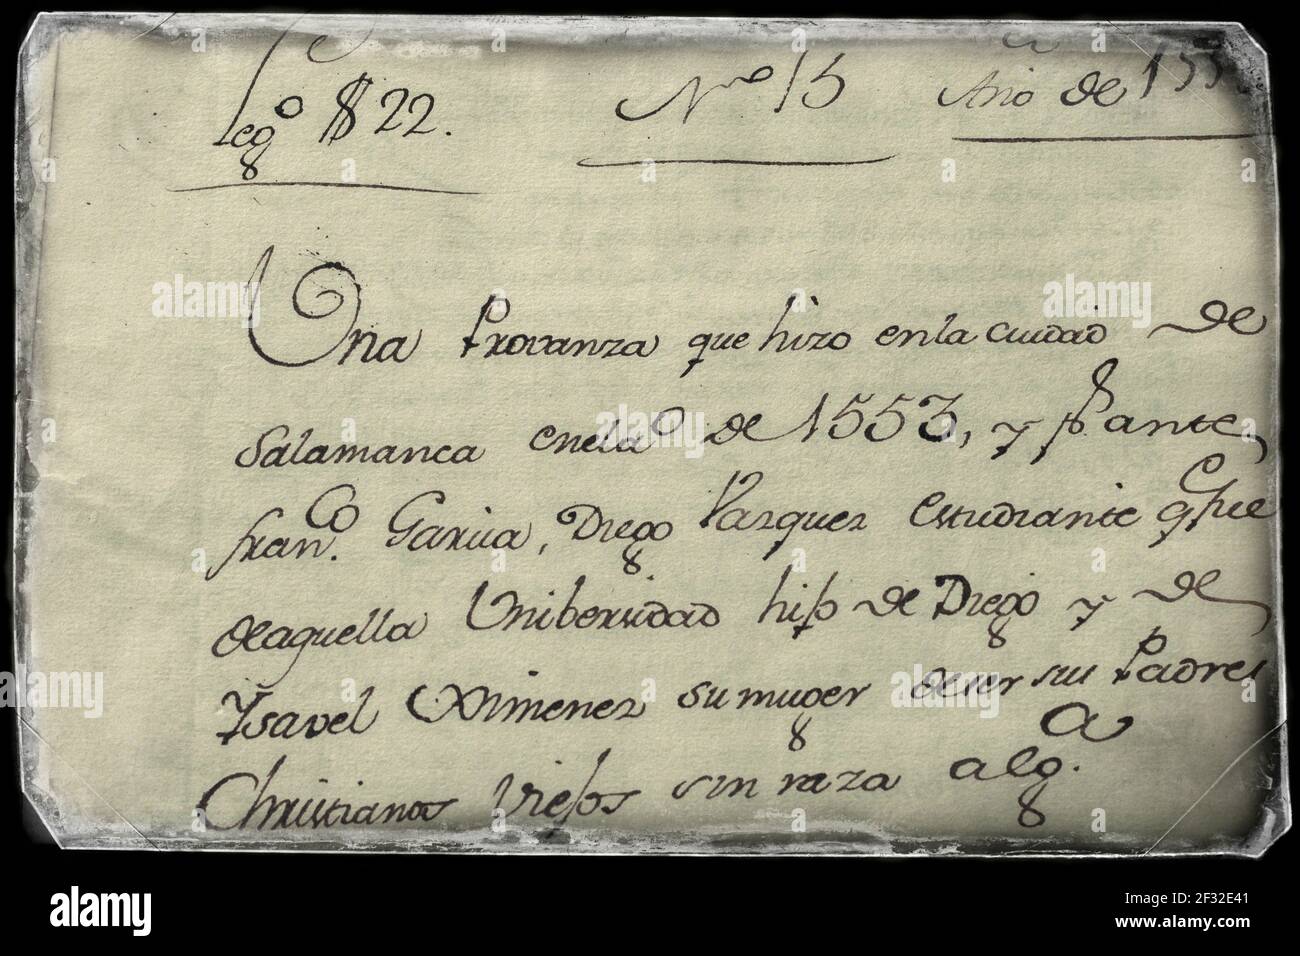 Leg.º 822. Nº 15 Año de 155
Una Provanza que hizo en la ciudad de
Salamanca en el aº de 1553, y pº ante
Fran.co Garcia, Diego Vazquez estudiante q fue
de aquella Unibersidad hijo de Diego y de
Ysavel Ximenez su muger de ser sus Padres
Christianos viejos sin raza alg.a
alamy
Image ID: 2F32E41
www.alamy.com